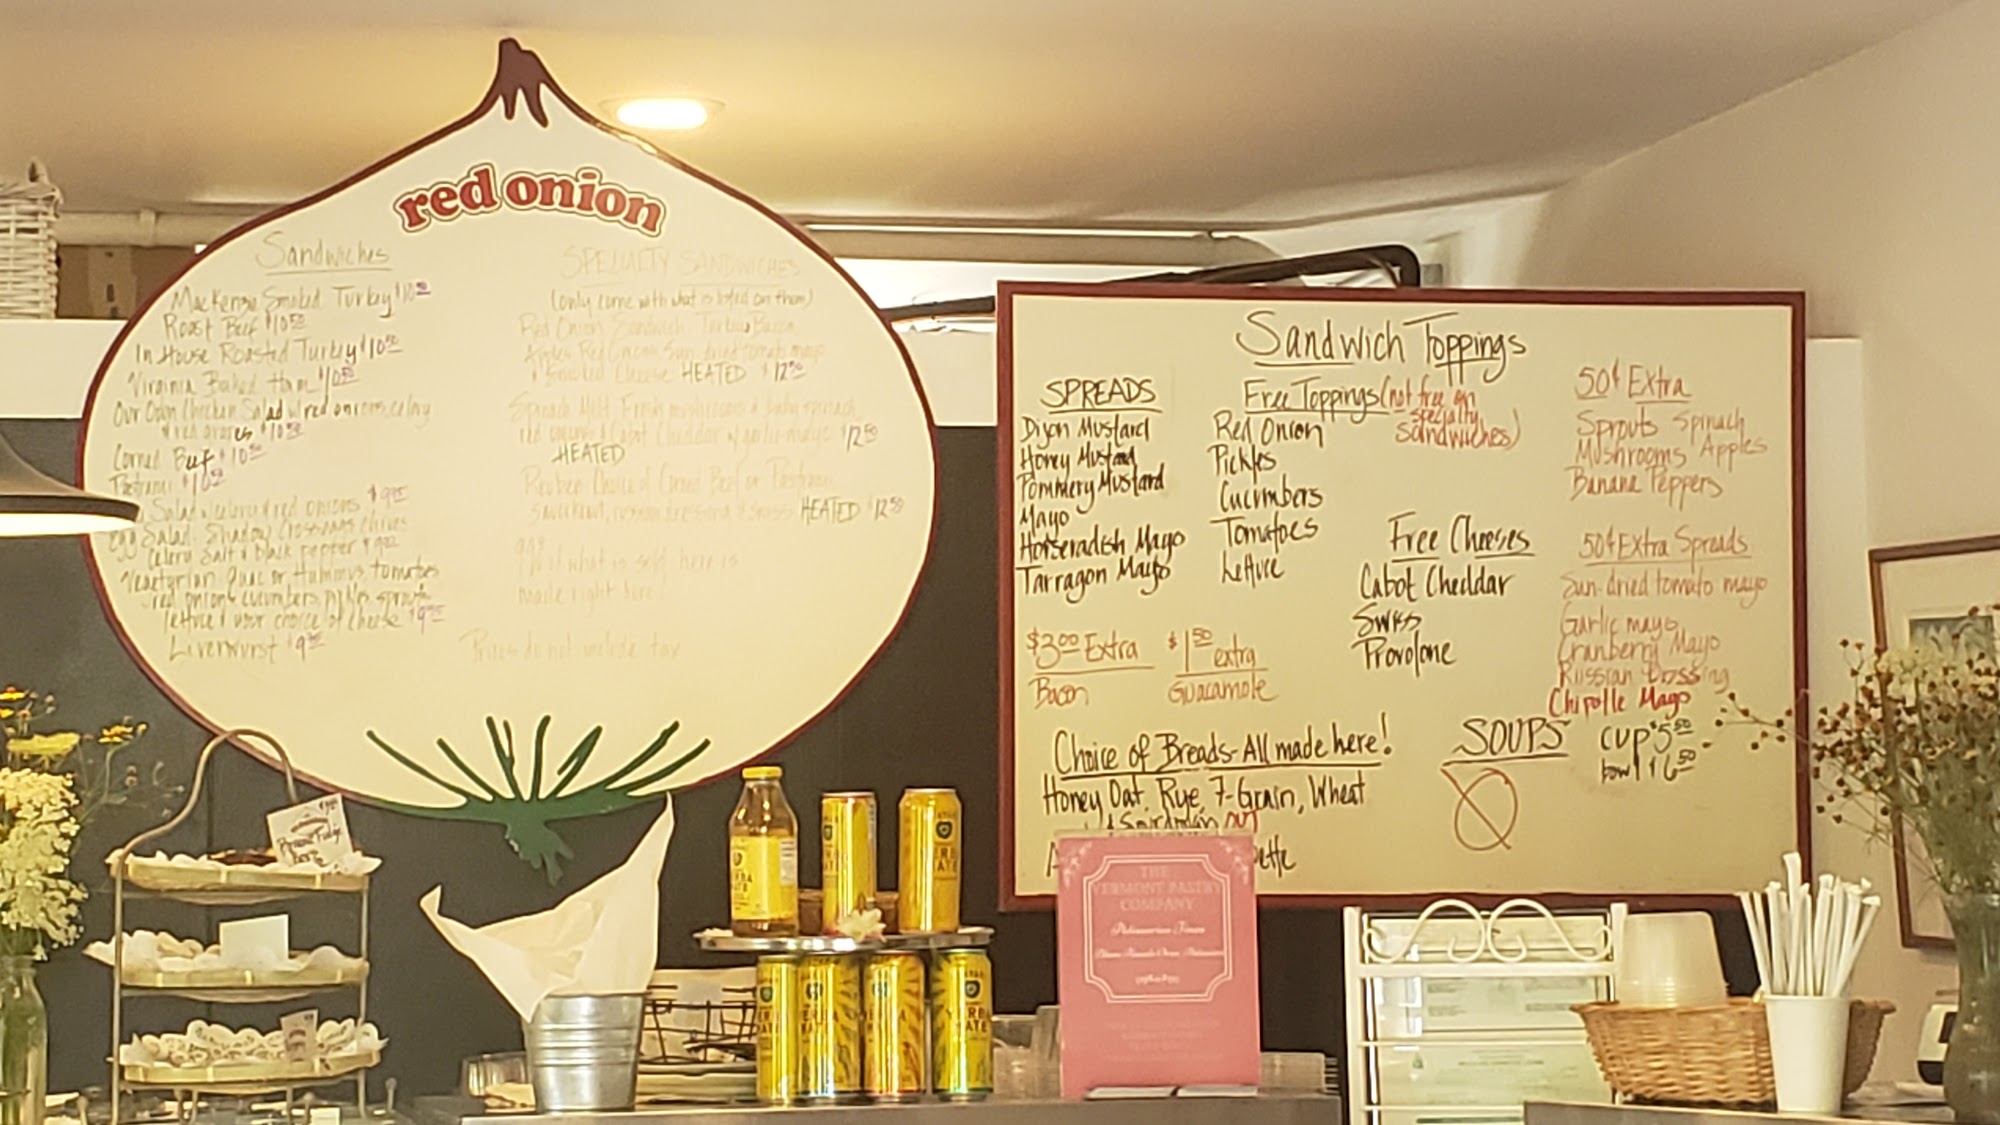 red onion
Sandwiches
MacKenzie Smoked Turkey $10.50
Roast Beef $10.50
In House Roasted Turkey $10.50
Virginia Baked Ham $10.50
Our Own Chicken Salad w/ red onions, celery
& red grapes $10.50
Corned Beef $10.50
Pastrami $10.50
Salad w/ celery & red onions
Egg Salad, Shadow Crossings chives
celery salt & black pepper
Vegetarian Guac or Hummus, tomatoes
red onions cucumbers, pickles sprouts
lettuce & your choice of cheese
Liverwurst
SPECIALTY SANDWICHES
(only come with what is listed on them)
Red Onion Sandwich Turkey Bacon
Apples Red Onions Sun dried tomato mayo
& Smoked Cheese HEATED $12.50
Spinach Melt Fresh mushrooms & baby spinach
red onions & Cabot Cheddar w/ garlic mayo $12.50
HEATED
Reuben Choice of Corned Beef or Pastrami
sauerkraut, russian dressing & swiss HEATED $12.50
99% of what is sold here is
made right here!
Prices do not include tax
Sandwich Toppings
SPREADS
Dijon Mustard
Honey Mustard
Pommery Mustard
Mayo
Horseradish Mayo
Tarragon Mayo
Free Toppings (not free on
specialty
sandwiches)
Red Onion
Pickles
Cucumbers
Tomatoes
Lettuce
Free Cheeses
Cabot Cheddar
Swiss
Provolone
50¢ Extra
Sprouts Spinach
Mushrooms Apples
Banana Peppers
50¢ Extra Spreads
Sun-dried tomato mayo
Garlic mayo
Cranberry Mayo
Russian Dressing
Chipolte Mayo
$3.00 Extra
Bacon
$1.50 extra
Guacamole
Choice of Breads-All made here!
Honey Oat, Rye, 7-Grain, Wheat
& Sourdough out
SOUPS
cup $5.50
bowl $6.50
THE
VERMONT PASTRY
COMPANY
YERBA
MATE